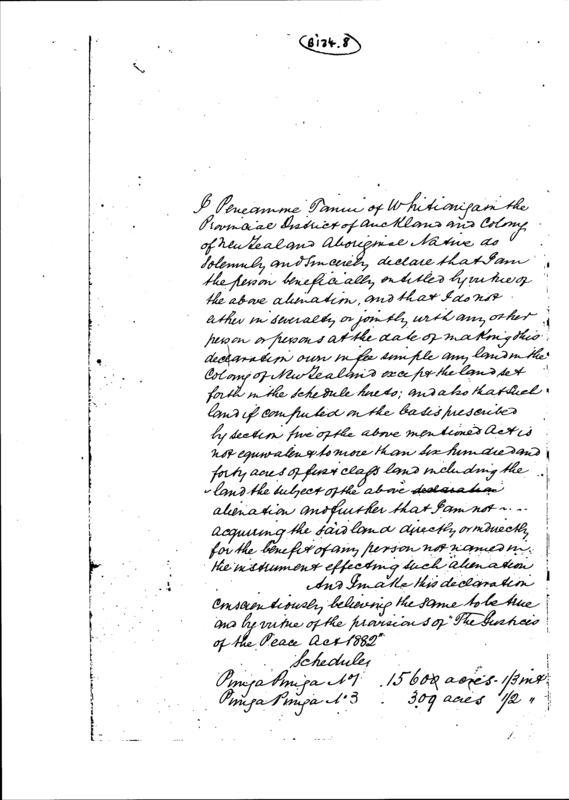 B134.8
I Peneamme Tanui of Whitianga in the
Provincial District of Auckland and Colony
of New Zealand Aboriginal Native do
Solemnly and Sincerely declare that I am
the person beneficially entitled by virtue of
the above alienation, and that I do not
either in severalty or jointly with any other
person or persons at the date of making this
declaration own in fee simple any land in the
Colony of New Zealand except the land set
forth in the schedule hereto; and also that such
land if computed on the basis prescribed
by section five of the above mentioned Act is
not equivalent to more than six hundred and
forty acres of first class land including the
land the subject of the above declaration
alienation and further that I am not
acquiring the said land directly or indirectly
for the benefit of any person not named in
the instrument effecting such alienation
And I make this declaration
conscientiously believing the same to be true
and by virtue of the provisions of "The Justices
of the Peace Act 1882"
Schedule
Pungapunga No 1 . 1560 acres - 1/3 int
Pungapunga No 3 . 309 acres 1/2 "